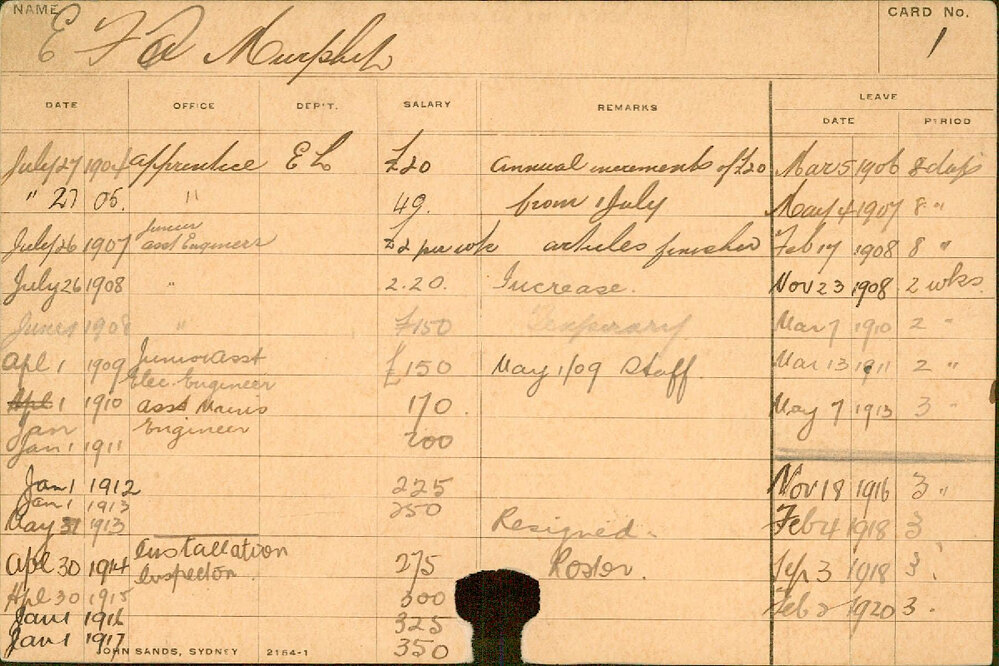 NAME
E F A Murphy
CARD No.
1
DATE OFFICE DEP'T. SALARY REMARKS LEAVE
DATE PERIOD
July 27 1904 apprentice E L £20 annual increments of £20 Mar 5 1906 8 days
" 27 05. " 49. from 1 July May 4 1907 8 "
July 26 1907 Junior asst Engineer £2 per wk articles finished Feb 17 1908 8 "
July 26 1908 " 2.20. Increase. Nov 23 1908 2 wks.
June 1 1908 " £150 Temporary Mar 7 1910 2 "
Apl 1 1909 Junior Asst £150 May 1/09 Staff. Mar 13 1911 2 "
Elec. Engineer
Apl 1 1910 asst Mains 170. May 7 1913 3 "
Jan
Engineer
Jan 1 1911 200
Jan 1 1912 225 Nov 18 1916 3 "
Jan 1 1913 250
May 31 1913 Resigned. Feb 4 1918 3
Installation
Apl 30 1914 Inspector. 275 Sep 3 1918 3
Apl 30 1915 300 Feb 2 1920 3.
Jan 1 1916 325
Jan 1 1917 350
JOHN SANDS, SYDNEY 2164-1